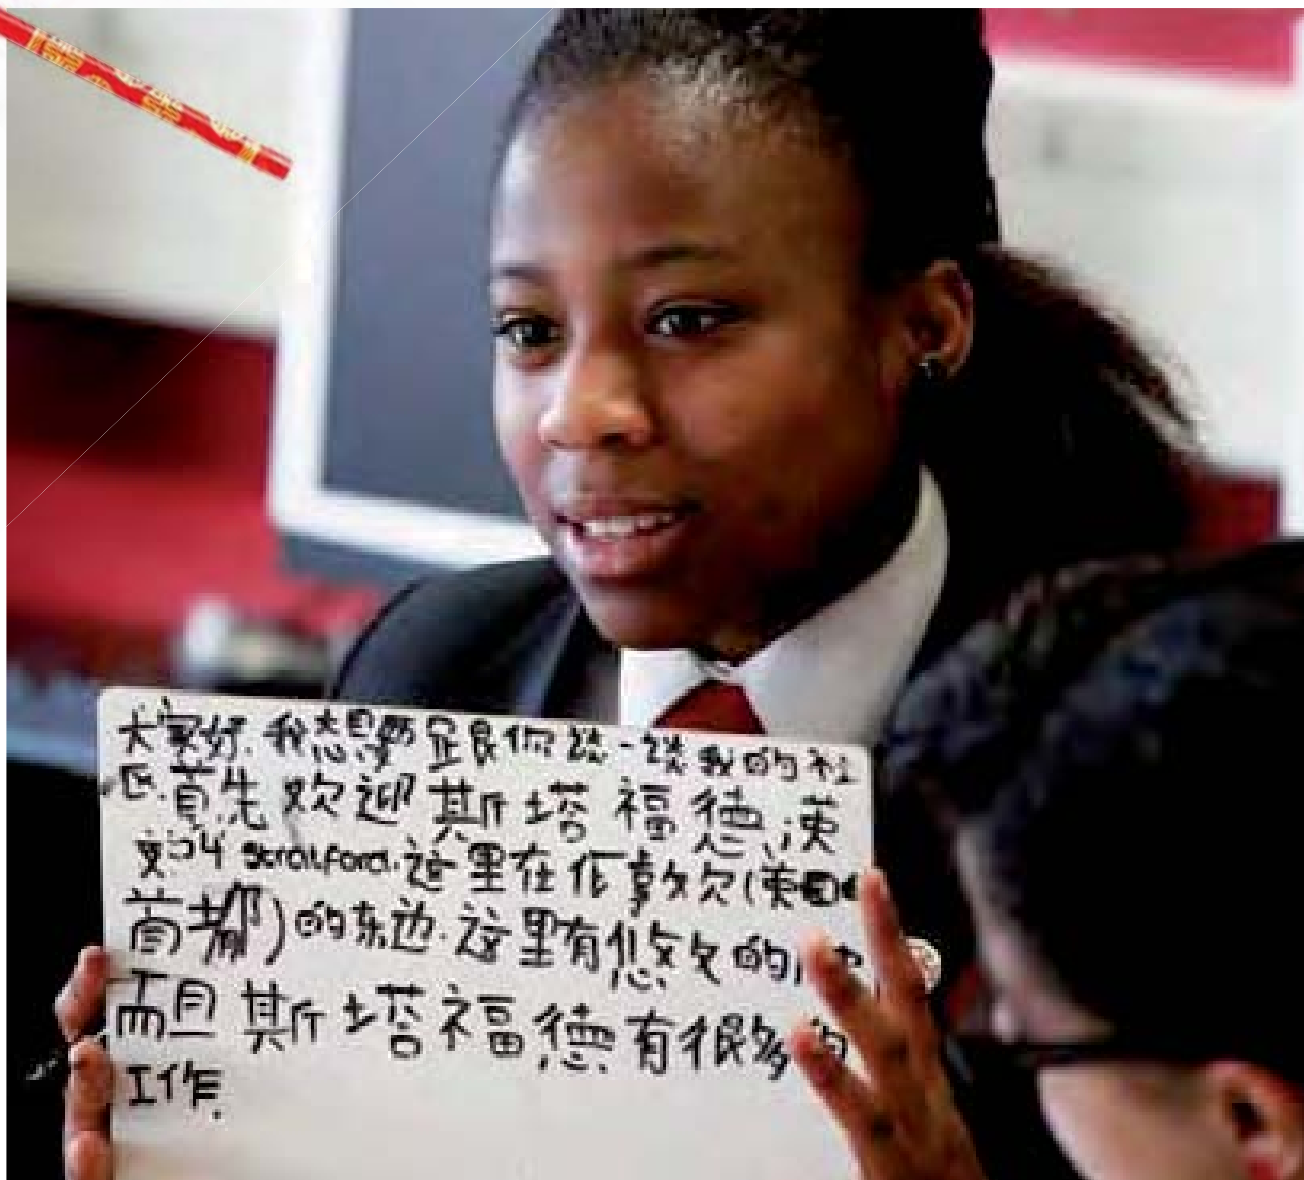 大家好.我想要跟你谈一谈我的社
区.首先欢迎斯塔福德,英
文叫 stratford.这里在伦敦(英国
首都)的东边.这里有悠久的
而且斯塔福德有很多的
工作.